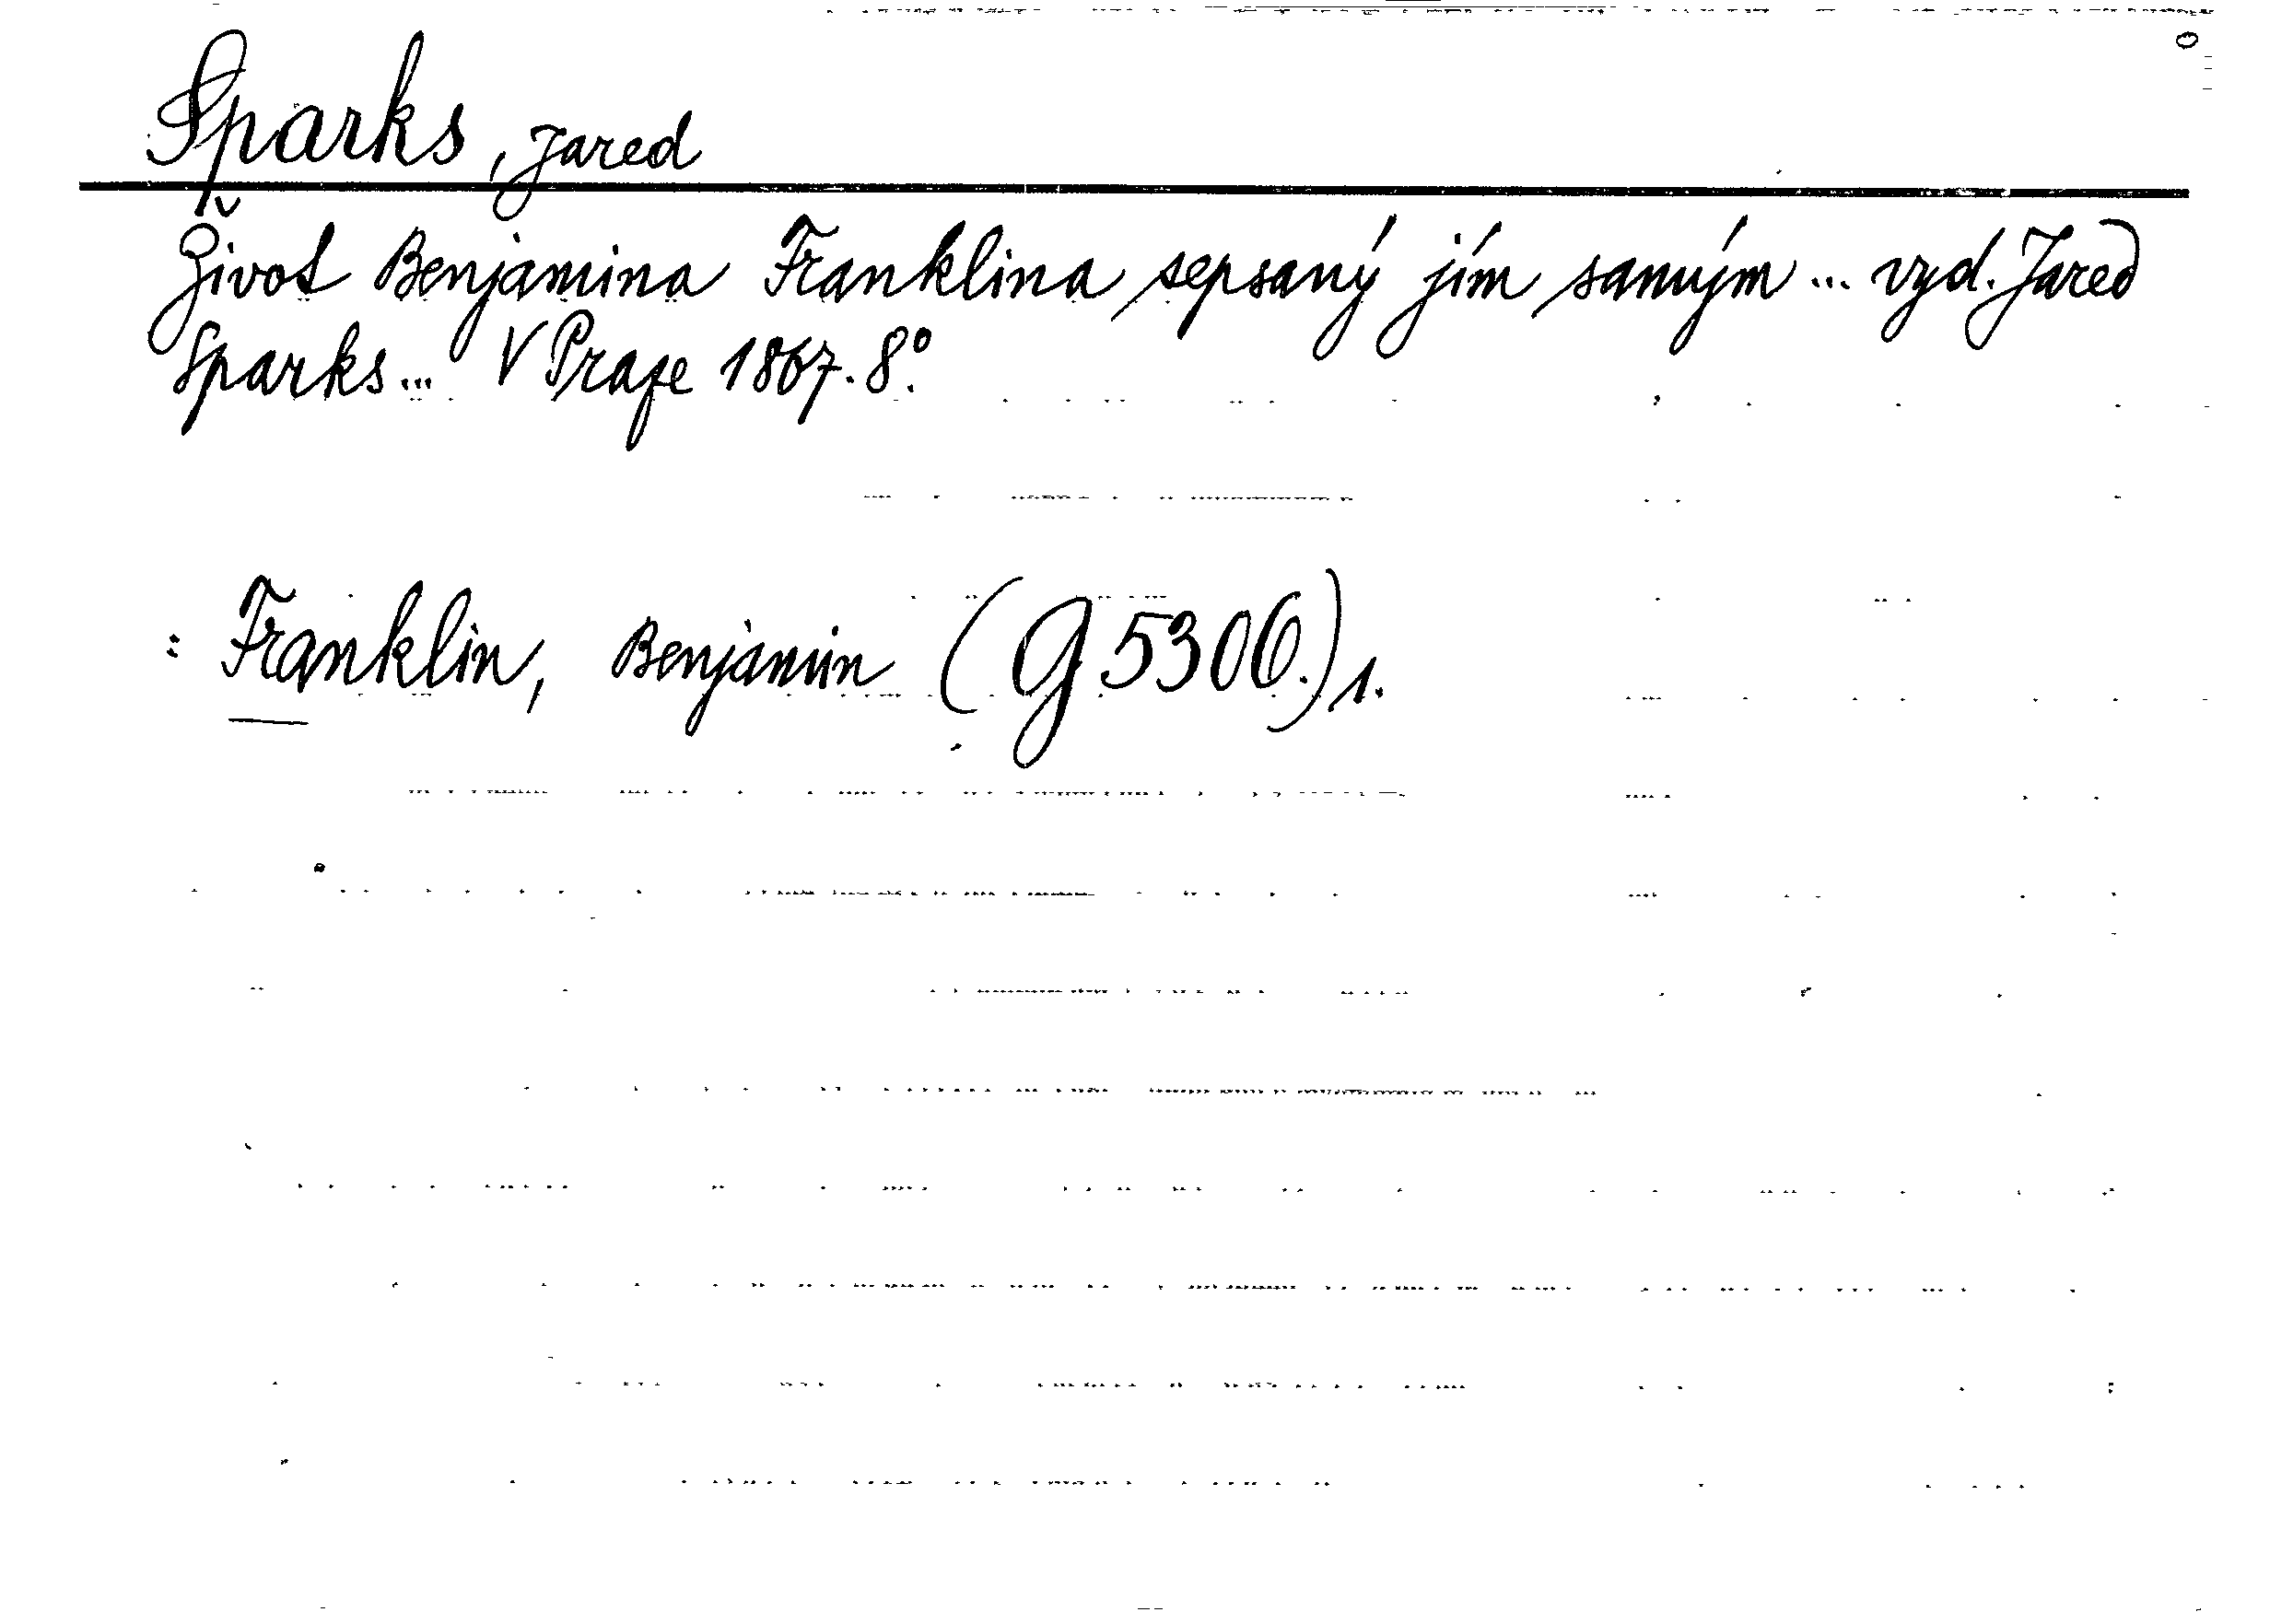 Sparks, Jared
Život Benjamina Franklina, sepsaný jím samým ... vyd. Jared
Sparks ... V Praze 1867. 8°.
: Franklin, Benjamin (G 5306.) 1.